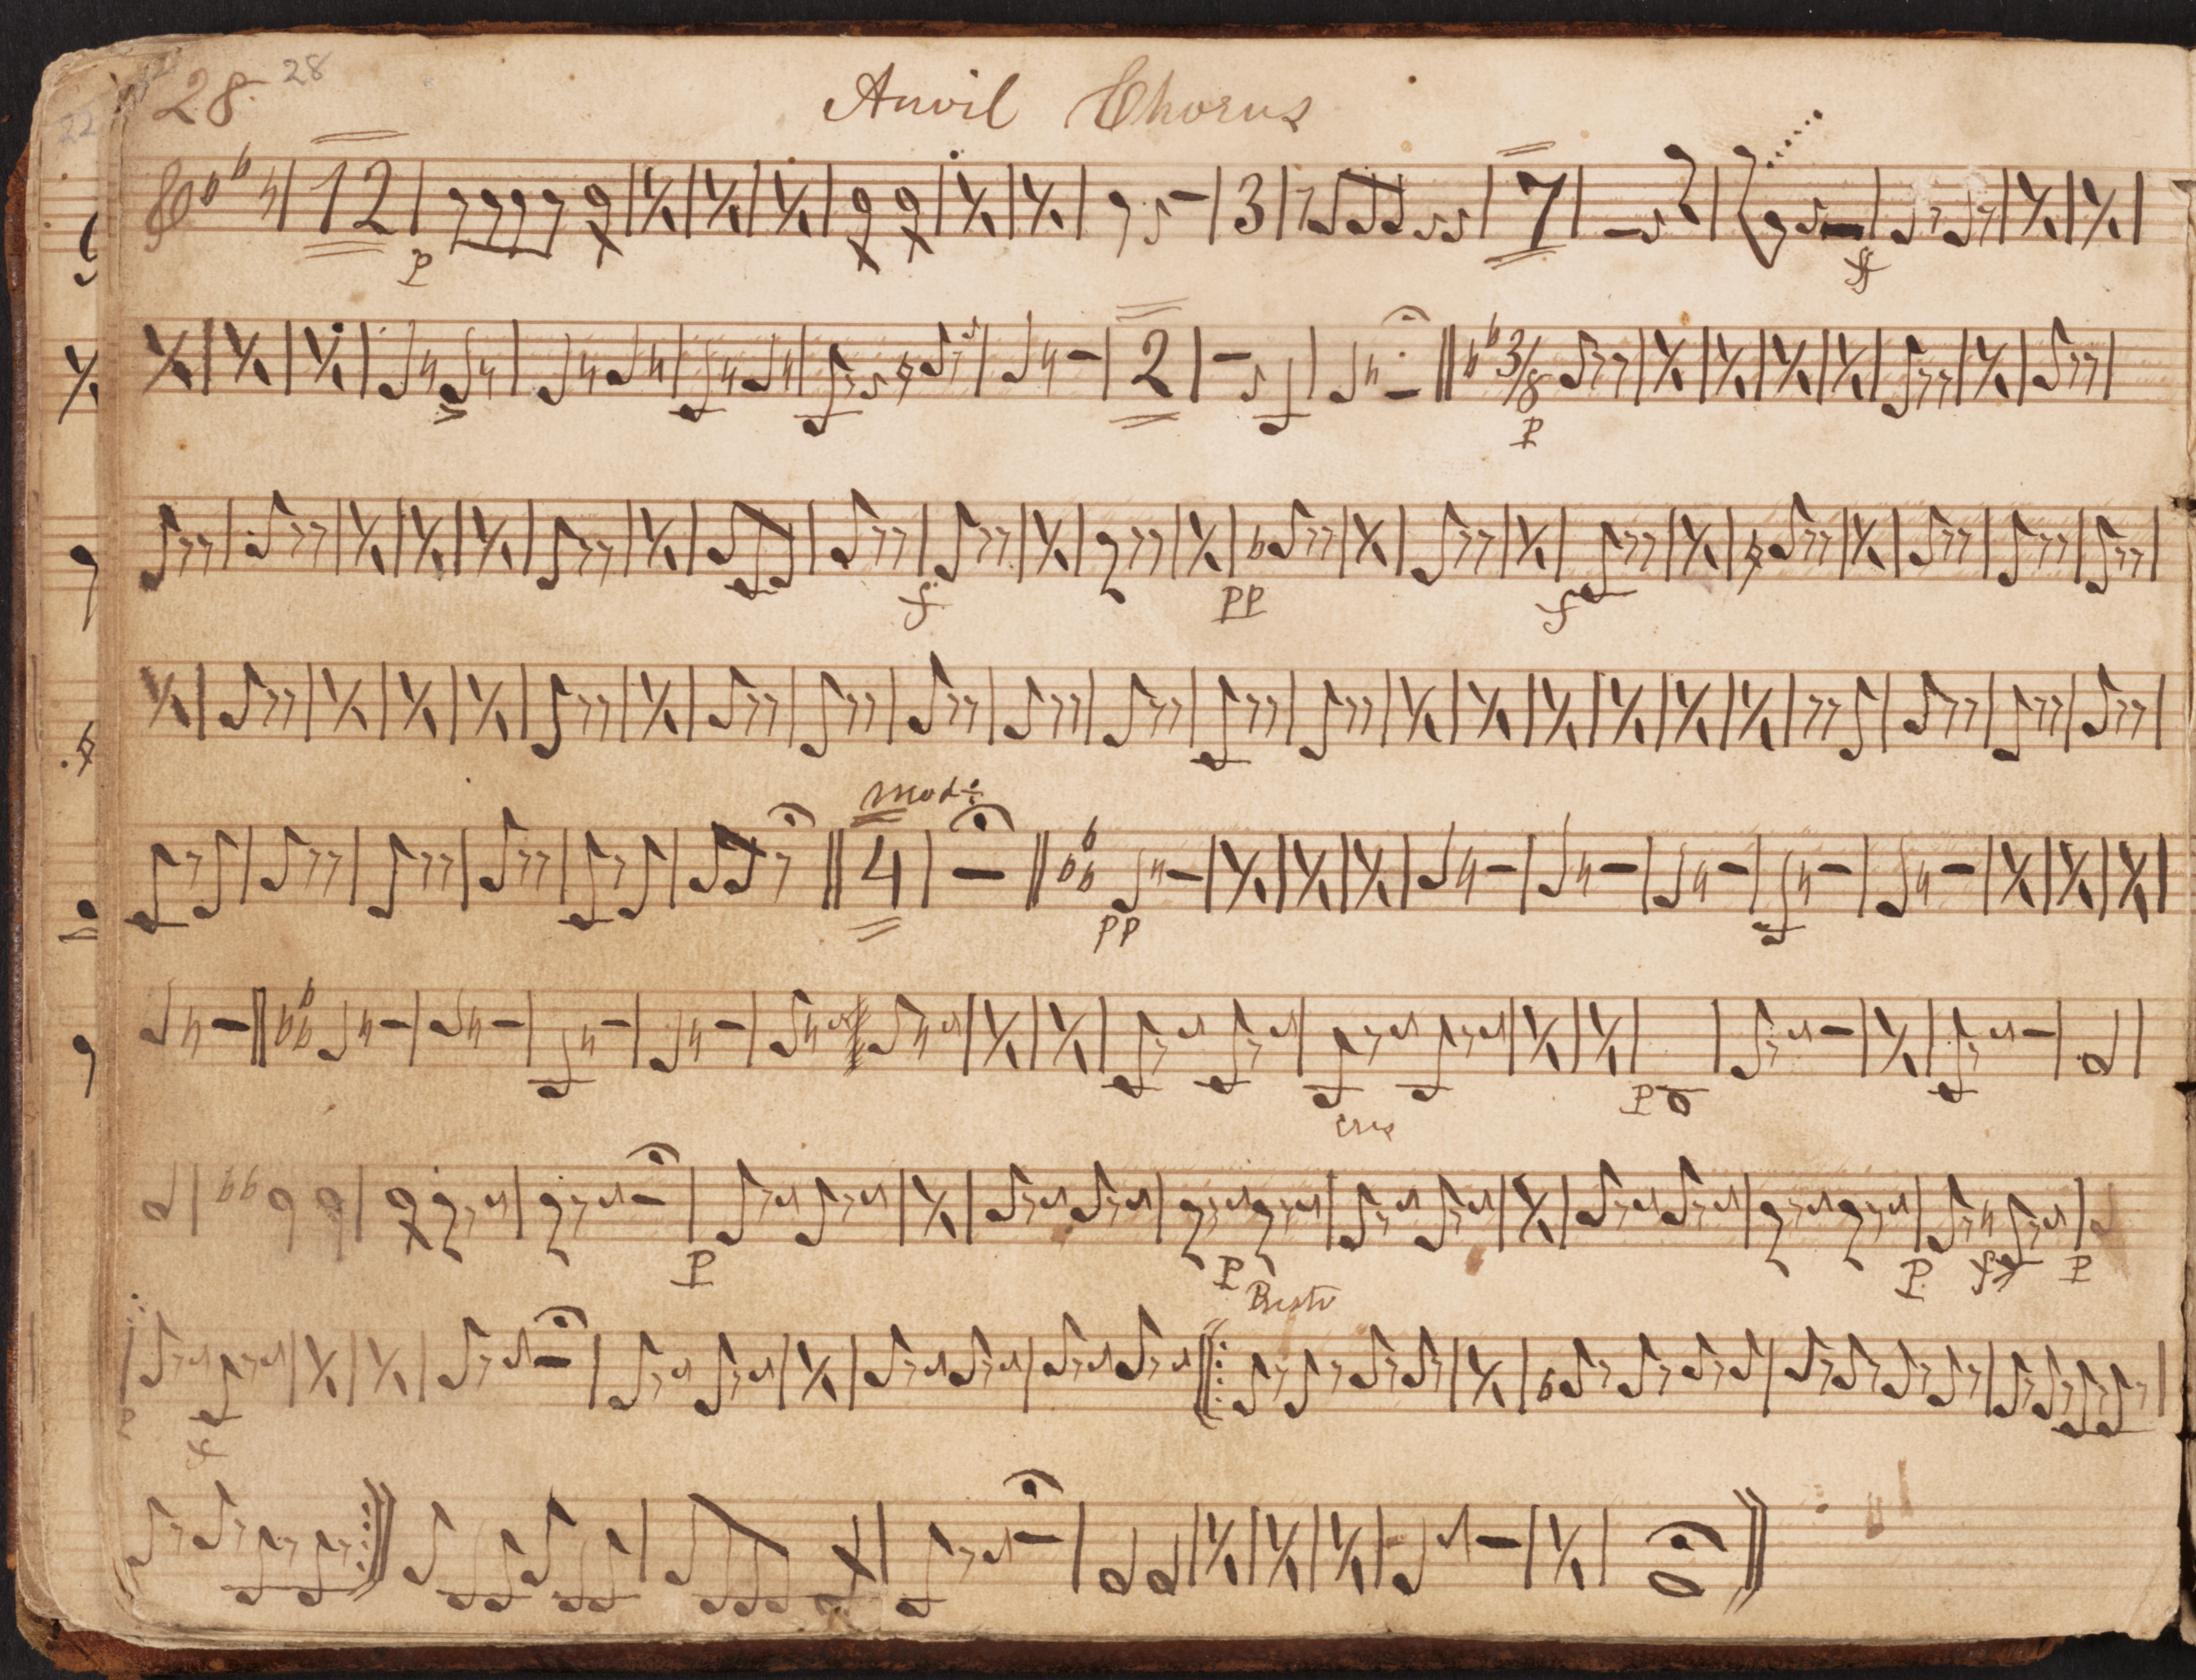 28. 28
Anvil Chorus
12 3 7
p ff
2 3/8
p
f pp f
mod:
4
pp
cres
p
p p p f p
Presto
p f